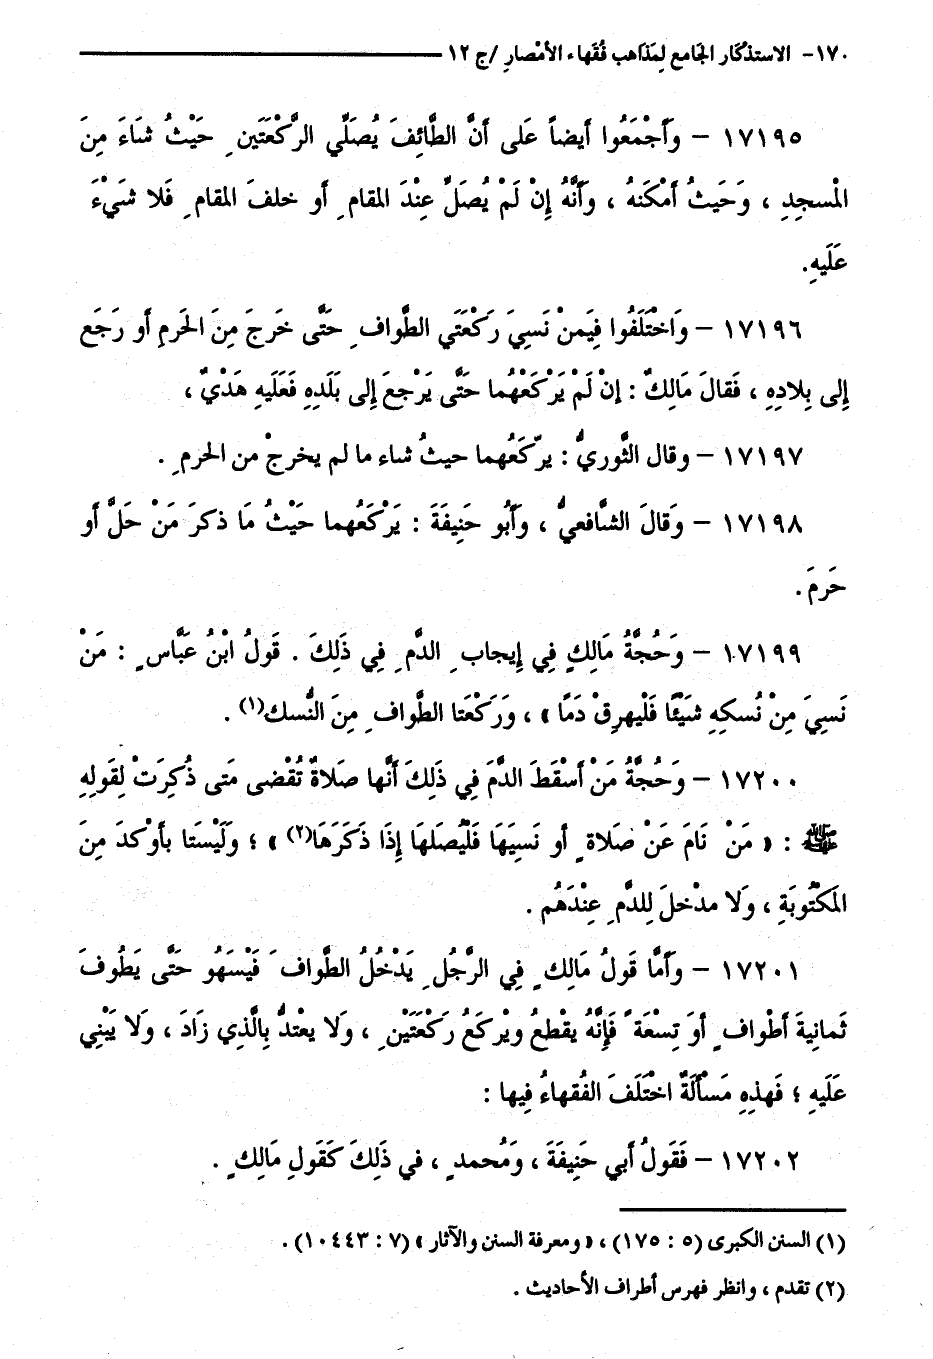 ١٧٠- الاستذكار الجامع لمَذاهب فُقَهاء الأمْصارِ /ج ١٢
١٧١٩٥ – وَأَجْمَعُوا أيضاً عَلى أنَّ الطَّائِفَ يُصَلِّي الرَّكْعَتَينِ حَيْثُ شَاءَ مِنَ
المْسجِدِ ، وَحَيثُ أمْكَنهُ ، وأَنَّهُ إِنْ لَمْ يُصَلِّ عِنْدَ المقامِ أو خلفَ المقامِ فَلا شَيْءَ
عَلَيهِ.
١٧١٩٦ – وَاخْتَلَفُوا فِيَمنْ نَسِيَ رَكْعَتَي الطَّوافِ حَتَّى خَرجَ مِنَ الحَرمِ أو رَجَع
إِلى بِلادِهِ ، فَقالَ مَالِكٌ : إنْ لَمْ يَرْكَعْهُما حَتَّى يَرْجعَ إلى بَلَدِهِ فَعَلَيهِ هَدْيٌ ،
١٧١٩٧ – وقال الثَّوريُّ : يرْكَعُهما حيثُ شاء ما لم يخرجْ من الحرمِ .
١٧١٩٨ – وَقالَ الشَّافعيُّ ، وَأَبُو حَنِيفَةَ : يَرْكَعُهما حَيْثُ مَا ذكرَ مَنْ حَلَّ أو
حَرمَ .
١٧١٩٩ – وَحُجَّةُ مَالِكٍ فِي إيجابِ الدَّمِ فِي ذَلِكَ . قَولُ ابْنُ عَبَّاسٍ : مَنْ
نَسِيَ مِنْ نُسكِهِ شَيْئًا فَلْيهرِقْ دَمًا » ، وَرَكْعَتا الطَّوافِ مِنَ النُّسك(١) .
١٧٢٠٠ – وَحُجَّةُ مَنْ أسْقَطَ الدَّمَ فِي ذَلِكَ أنَّها صَلاةٌ تُقْضى مَتى ذُكِرَتْ لِقَولِهِ
ﷺ : « مَنْ نَامَ عَنْ صَلاةٍ أو نَسِيَهَا فَلْيُصَلهَا إِذَا ذَكَرَهَا(٢) » ؛ وَلَيْسَتا بأوْكدَ مِنَ
المَكْتُوبَةِ ، وَلا مدْخلَ لِلدَّمِ عِنْدَهُم .
١٧٢٠١ – وَأَمَّا قَولُ مَالِكٍ فِي الرَّجُلِ يَدْخُلُ الطَّوافَ فَيْسَهُو حَتَّى يَطُوفَ
ثَمانِيةَ أطْوافٍ أوَ تِسْعَةً فَإِنَّهُ يقْطعُ ويْركَعُ رَكْعَتَيْنِ ، وَلا يعْتدُّ بِالَّذِي زَادَ ، وَلا يَبْنِي
عَلَيهِ ؛ فَهذِهِ مَسْأَلَةٌ اخْتَلَفَ الفُقهاءُ فِيها :
١٧٢٠٢ – فَقَولُ أبي حَنِيفَةَ ، وَمُحمدٍ ، في ذَلِكَ كَقَولِ مَالِكٍ .
(١) السنن الكبرى (٥ : ١٧٥) ، « ومعرفة السنن والآثار » (٧ : ١٠٤٤٣) .
(٢) تقدم ، وانظر فهرس أطراف الأحاديث .